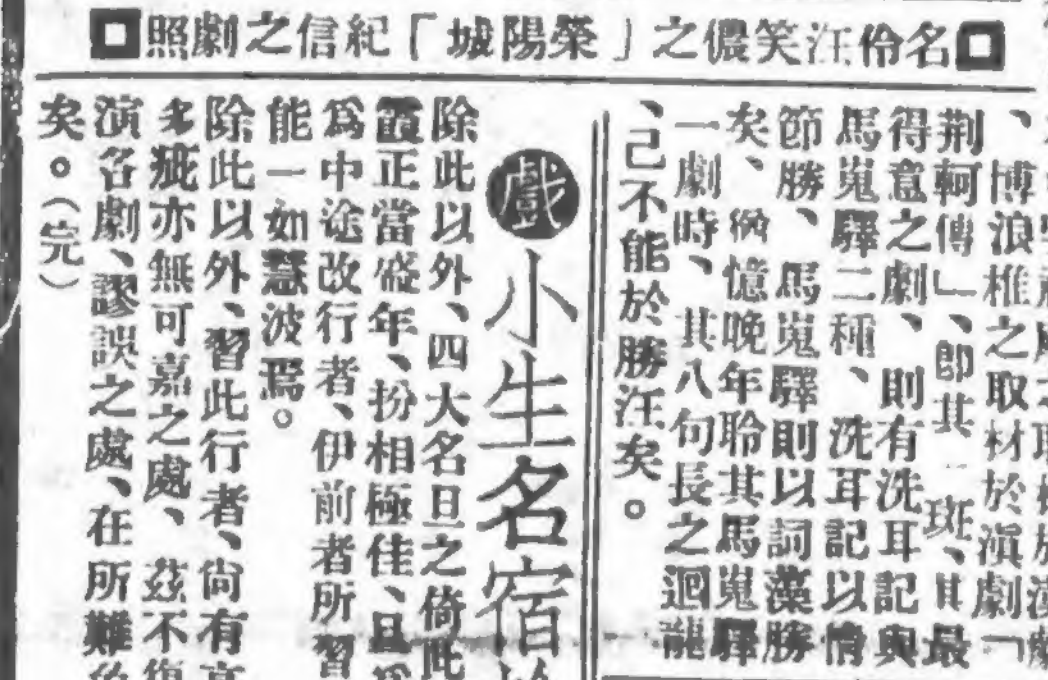 名伶汪笑儂之「榮陽城」紀信之劇照
、博浪椎之取材於滇劇「
荆軻傳」、即其一斑、其最
得意之劇、則有洗耳記與
馬嵬驛二種、洗耳記以情
節勝、馬嵬驛則以詞藻勝
矣、猶憶晚年聆其馬嵬驛
一劇時、其八句長之迴龍
、己不能於勝汪矣。
戲
小生名宿
除此以外、四大名旦之倚此
霞正當盛年、扮相極佳、且爲
爲中途改行者、伊前者所習
能一如慧波焉。
除此以外、習此行者、尙有
多疵亦無可嘉之處、茲不復
演名劇、謬誤之處、在所難
矣。(完)